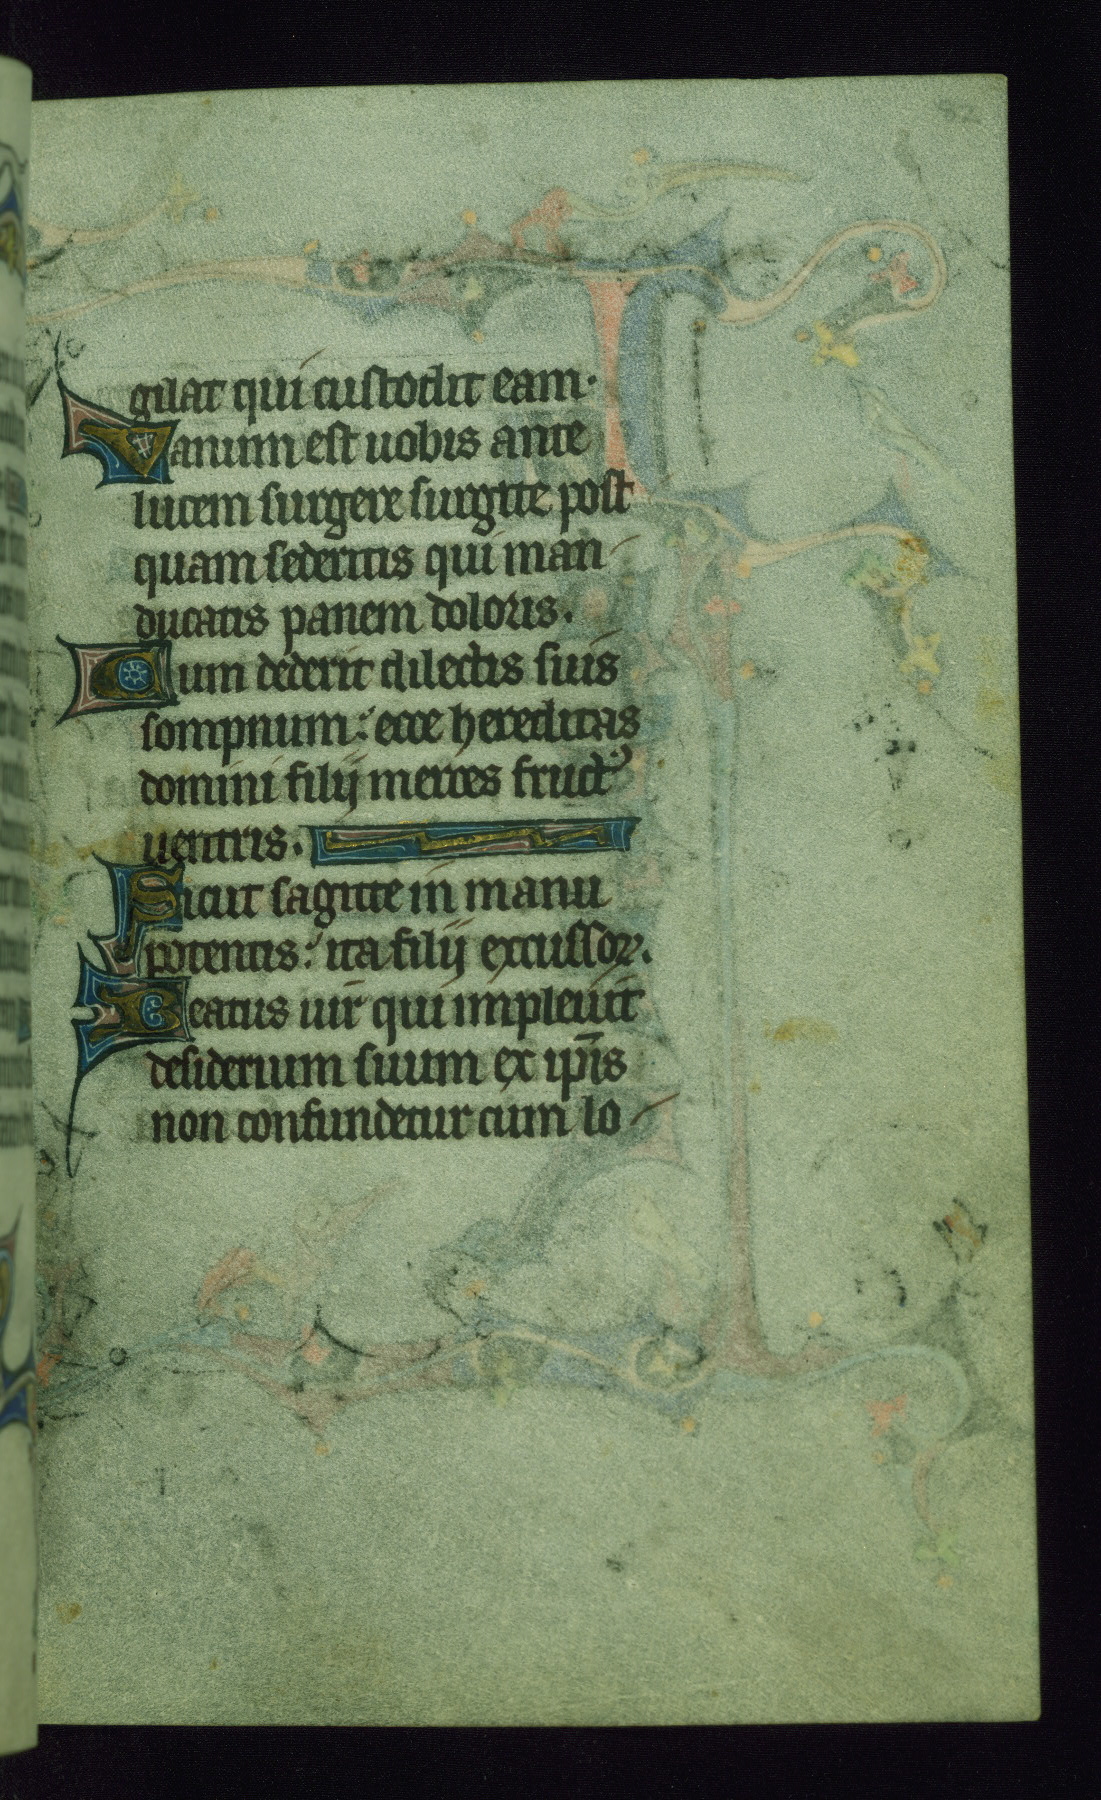 gilat qui custodit eam.
Vanum est uobis ante
lucem surgere surgite post
quam sederitis qui man
ducatis panem doloris.
Cum dederit dilectis suis
sompnum: ecce hereditas
domini filij merces fruct᾿
uentris.
Sicut sagitte in manu
potentis: ita filij excussoꝝ.
Beatus uir qui impleuit
desiderium suum ex ip̄is
non confundetur cum lo